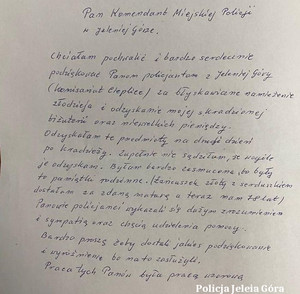 Pan Komendant Miejskiej Policji
w Jeleniej Górze.
Chciałam pochwalić i bardzo serdecznie
podziękować Panom policjantom z Jeleniej Góry
(Komisariat Cieplice) za błyskawiczne namierzenie
złodzieja i odzyskanie mojej skradzionej
biżuterii oraz niewielkich pieniędzy.
Odzyskałam te przedmioty na drugi dzień
po kradzieży. Zupełnie nie sądziłam, że w ogóle
je odzyskam. Byłam bardzo zasmucona, bo były
to pamiątki rodzinne. (Łańcuszek złoty z serduszkiem
dostałam za zdaną maturę a teraz mam lat)
Panowie policjanci wykazali się dużym zrozumieniem
i sympatią oraz chęcią udzielenia pomocy.
Bardzo proszę żeby dostali jakieś podziękowanie
i wyróżnienie bo na to zasłużyli.
Praca tych Panów była pracą wzorową
Policja Jeleia Góra